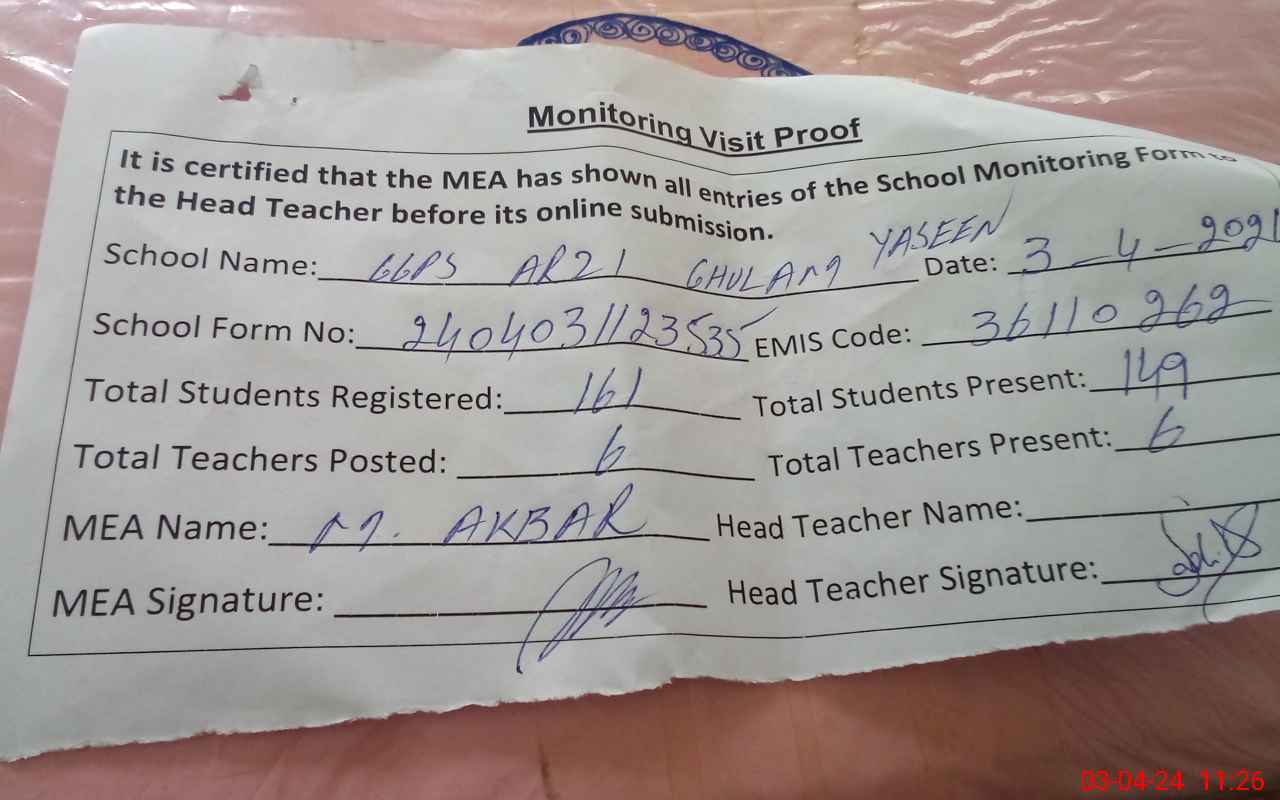 Monitoring Visit Proof
It is certified that the MEA has shown all entries of the School Monitoring Form to
the Head Teacher before its online submission.
School Name: GGPS ARZI GHULAM YASEEN Date: 3-4-2021
School Form No: 24040311235535 EMIS Code: 36110262
Total Students Registered: 161 Total Students Present: 149
Total Teachers Posted: 6 Total Teachers Present: 6
MEA Name: M. AKBAR Head Teacher Name:
MEA Signature: Head Teacher Signature:
03-04-24 11:26